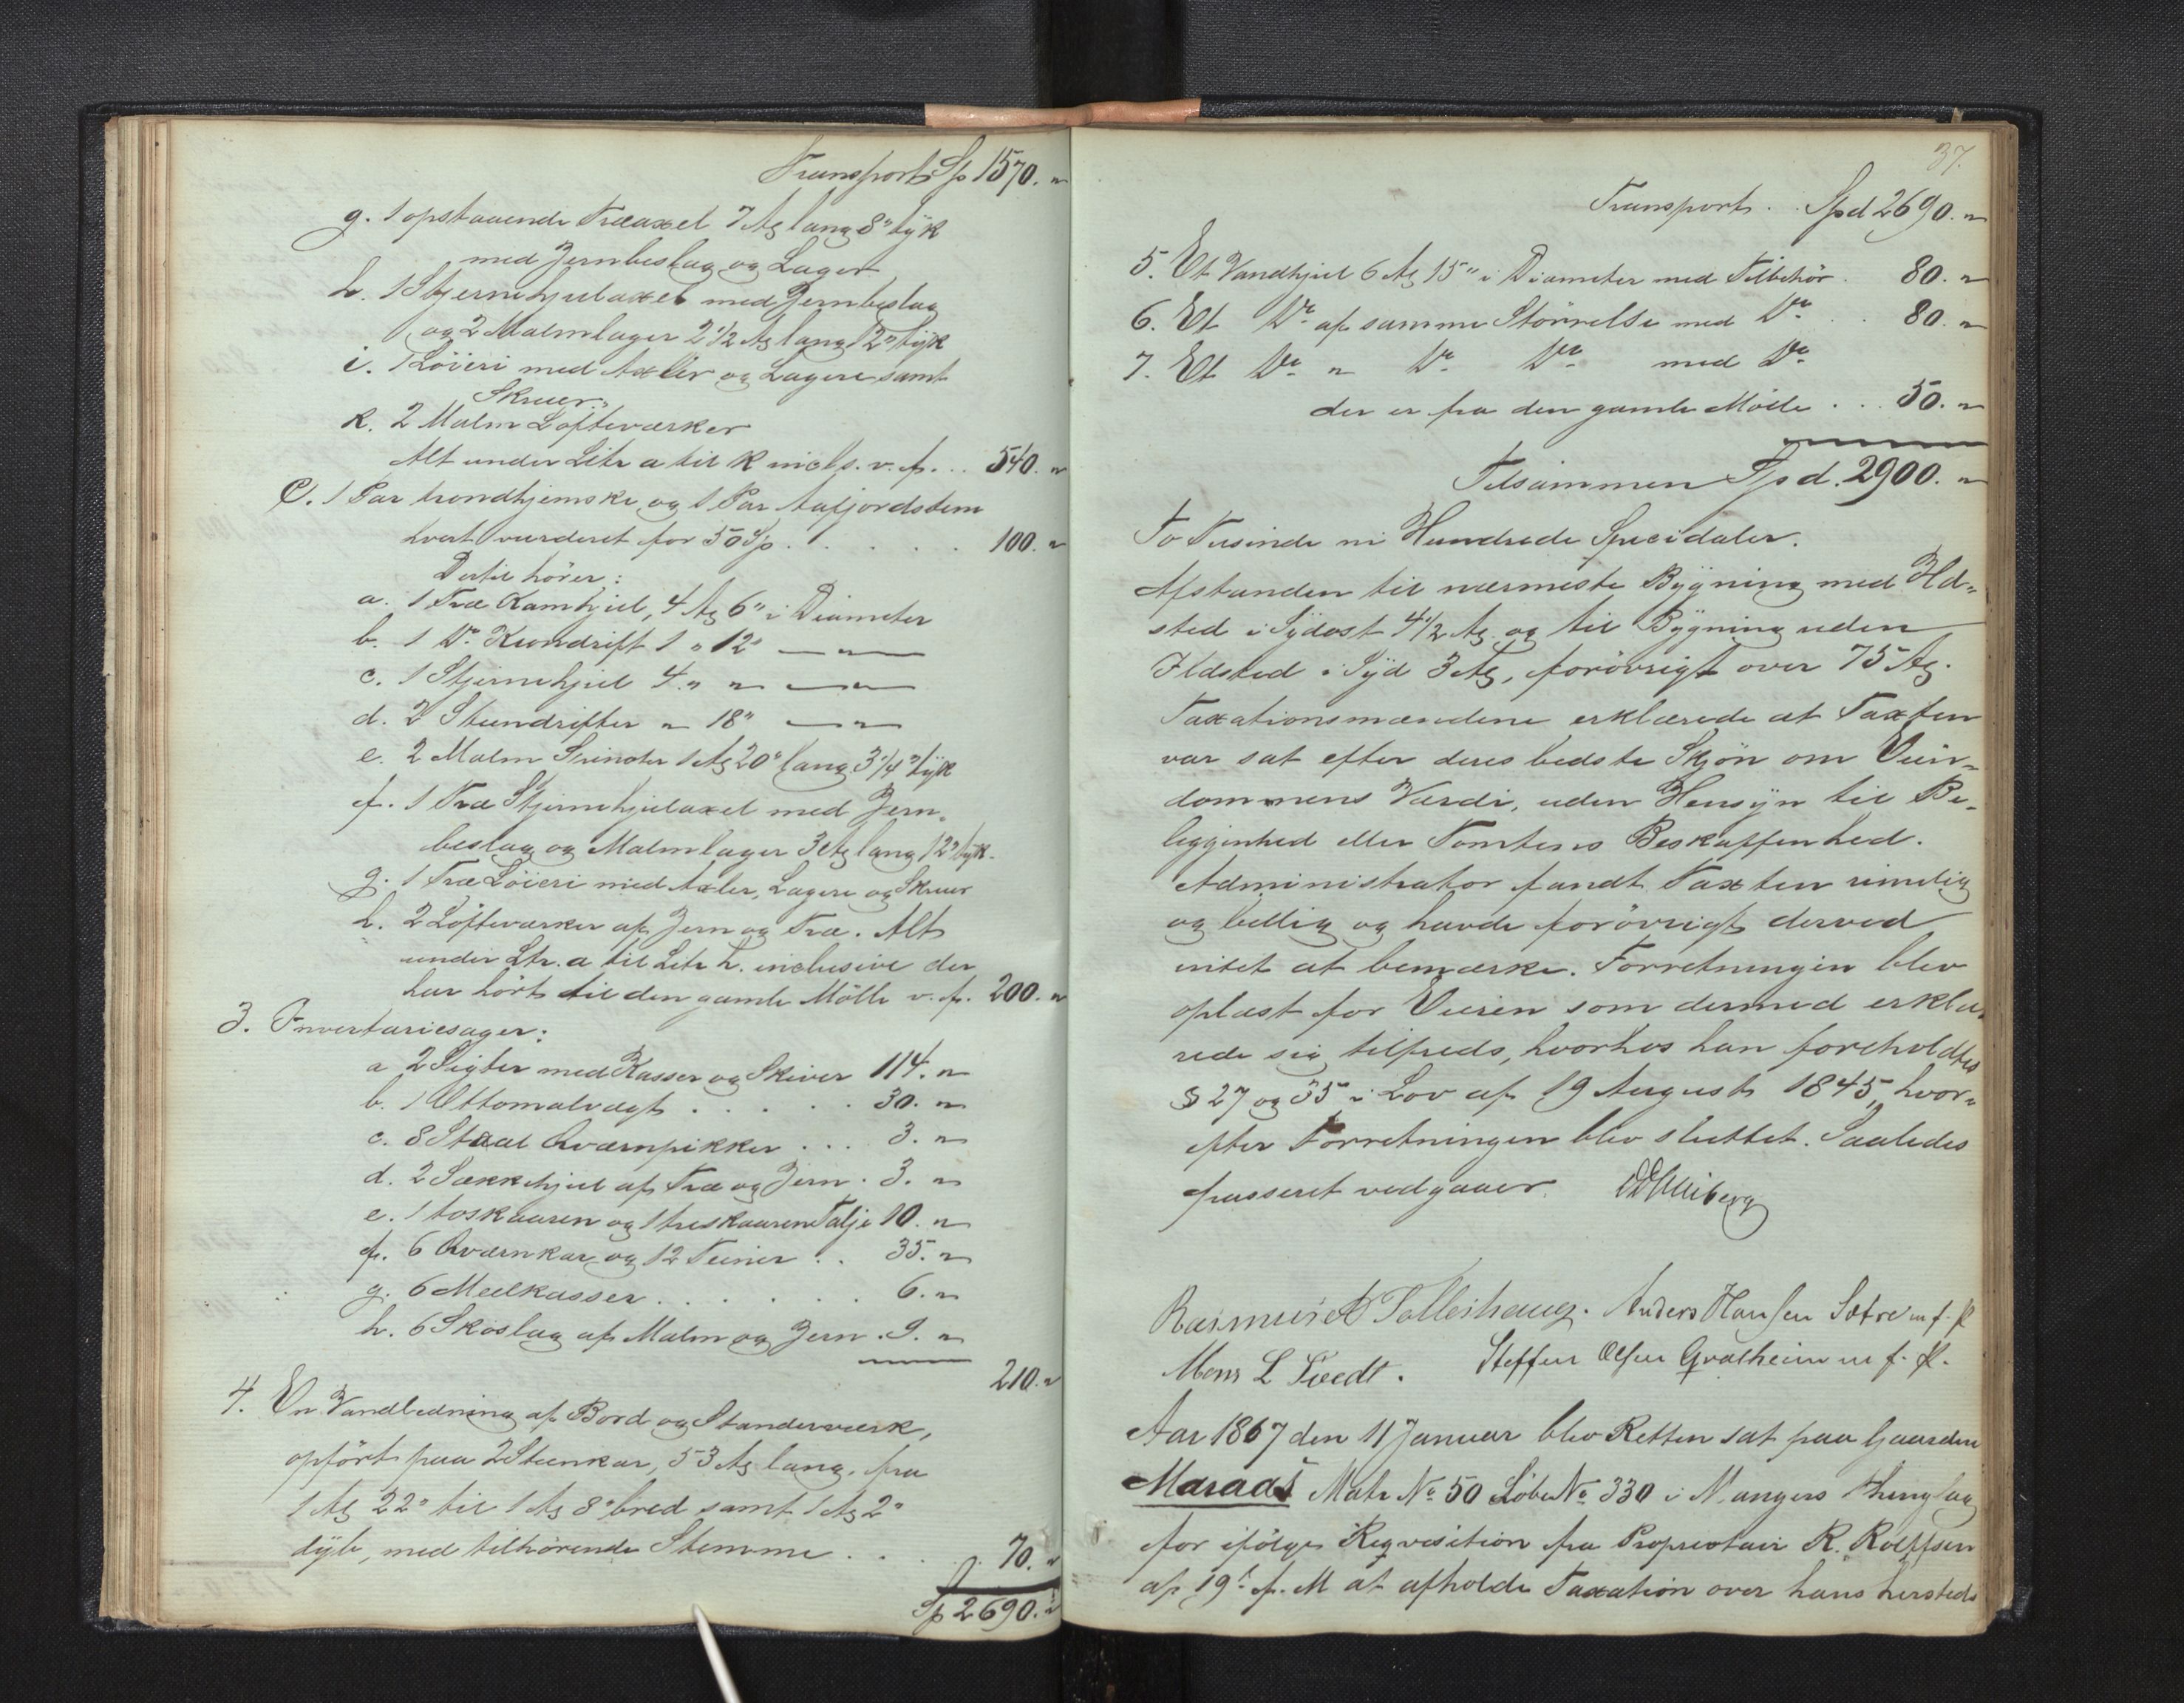 Transport Sp 1570. "
g. 1 opstaaende Træaxel 7 Al lang 8" tyk
med Jernbeslag og Lager
h. 1 Stjernehjulaxel med Jernbeslag
og 2 Malmlager 2 1/2 Al lang 12" tyk
i. 1 Löieri med Axler og Lagere samt
Skruer.
k. 2 Malm Löfteværker
Alt under Litr a til k incls. v. f. .. 540. "
C. 1 Par trondhjemske og 1 Par Aafjordsteen
hvert vurderet for 50 Sp. . . . . . 100. "
Dertil hörer:
a. 1 Træ Kamhjul, 4 Al 6" i Diameter
b. 1 Do Krondrift 1 " 12" — " —
c. 1 Stjernehjul 4. " " — " —
d. 2 Steendrifter " 18" — " —
e. 2 Malm 1 Al 20" lang 3 1/4" tyk
f. 1 Træ Stjernehjulaxel med Jern-
beslag og Malmlager 3 Al lang 12" tyk.
g. 1 Træ Löieri med Axler, Lagere og Skruer
h. 2 Löfteværker af Jern og Træ. Alt
under Ltr. a til Litr h. inclusive der
har hört til den gamle Mölle v. f. 200. "
3. Inventariesager:
a 2 Sigter med Kasser og Skiver 114. "
b. 1 Ottomalvægt . . . . . 30. "
c. 8 Staal Qværnpikker . . . 3. "
d. 2 Sækkehjul af Træ og Jern . 3. "
e. 1 toskaaren og 1 treskaaren Talje 10. "
f. 6 Qværnkar og 12 Teiner . . 35. "
g. 6 Meelkasser . . . . . . 6. "
h. 6 Skoslag af Malm og Jern . 9. "
210. "
4. En Vandledning af Bord og Standerværk,
opfört paa 2 Steenkar, 53 Al lang, fra
1 Al 22" til 1 Al 8" bred samt 1 Al 2"
dyb, med tilhörende Stemme . . . . 70. "
Sp 2690. "
37.
Transport. . Spd 2690. "
5. Et Vandhjul 6 Al 15" i Diameter med Tilbehör . 80. "
6. Et Do af samme Störrelse med Do . . 80. "
7. Et Do " Do Do med Do
der er fra den gamle Mölle . . . 50. "
Tilsammen Spd. 2900. "
To Tusinde ni Hundrede Speciedaler.
Afstanden til nærmeste Bygning med Ild-
sted i Sydost 4 1/2 Al og til Bygning uden
Ildsted i Syd 3 Al, forövrigt over 75 Al.
Taxationsmændene erklærede at Taxten
var sat efter deres bedste Skjön om Eien-
dommens Værdi, uden Hensyn til Be-
liggenhed eller Tomtens Beskaffenhed.
Administrator fandt Taxten rimelig
og billig og havde forövrigt derved
intet at bemærke. Forretningen blev
oplæst for Eieren som dermed erklæ-
rede sig tilfreds, hvorhos han foreholdtes
§ 27 og 35 i Lov af 19 August 1845, hvor-
efter Forretningen blev sluttet. Saaledes
passeret vedgaaer.
Rasmus A Tolleshaug. Anders Hansen Sætre m. f. P
Mons L Tvedt. Steffen Olsen Qvalheim m. f. P.
Aar 1867 den 11 Januar blev Retten sat paa Gaarden
Maraas Matr No 50 Löbe No 330 i Mangers Thinglag
for ifölge Reqvisition fra Proprietair R. Rolfsen
af 19de f. M at afholde Taxation over hans hersteds